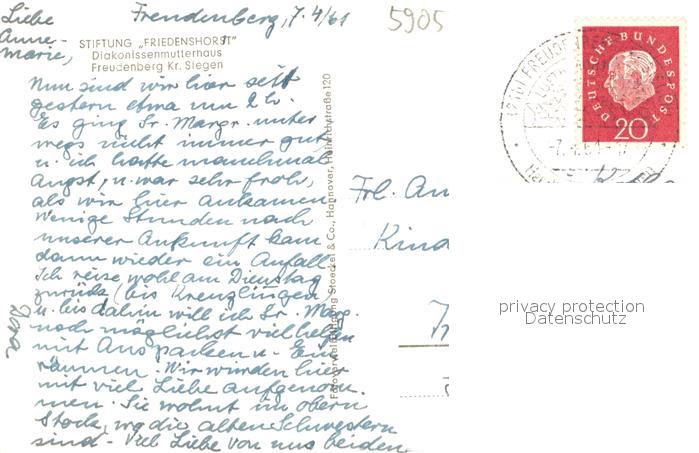 Freudenberg, 7.4/61
5905
Liebe
Anne-
marie,
STIFTUNG „FRIEDENSHORST"
Diakonissenmutterhaus
Freudenberg Kr. Siegen
Nun sind wir hier seit
gestern etwa um 2 h.
Es ging Sr. Margr. unter
wegs nicht immer gut
u. ich hatte manchmal
Angst, u. war sehr froh,
als wir hier ankamen.
Wenige Stunden nach
unserer Ankunft kam
dann wieder ein Anfall.
Ich reise wohl am Dienstag
zurück (bis Kreuzlingen
u. bis dahin will ich Sr. Marg.
noch möglichst viel helfen
mit Auspacken u. Ein
räumen. Wir wurden hier
mit viel Liebe aufgenom.
men. Sie wohnt im obern
Stock, wo die alten Schwestern
sind - Viel Liebe von uns beiden
Dora
Stoeckel & Co., Hannover, Heinrichstraße 120
DEUTSCHE BUNDESPOST
20
Frl. An
Kind
privacy protection
Datenschutz